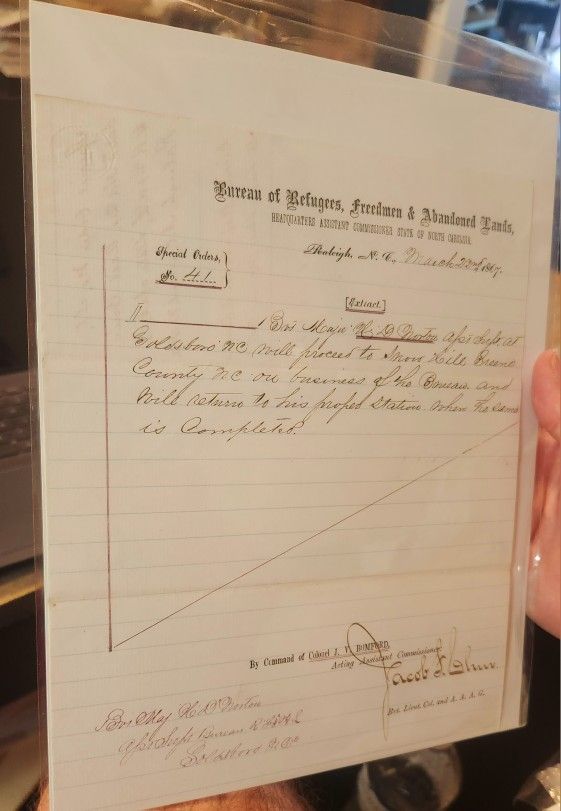 Bureau of Refugees, Freedmen & Abandoned Lands,
HEADQUARTERS ASSISTANT COMMISSIONER STATE OF NORTH CAROLINA.
Special Orders,
No. 41.
Raleigh, N. C., March 23rd 1867.
[Extract.]
II Bvt Maj. H. D. Norton Asst Supt at
Goldsboro NC will proceed to Snow Hill Greene
County NC on business of the Bureau and
will return to his proper station when the same
is Completed.
By Command of Colonel J. V. BOMFORD,
Acting Assistant Commissioner
Jacob F. Chur.
Bvt. Lieut. Col. and A. A. A. G.
Bvt Maj H D Norton
Asst Supt Bureau R F & A L
Goldsboro N. C.